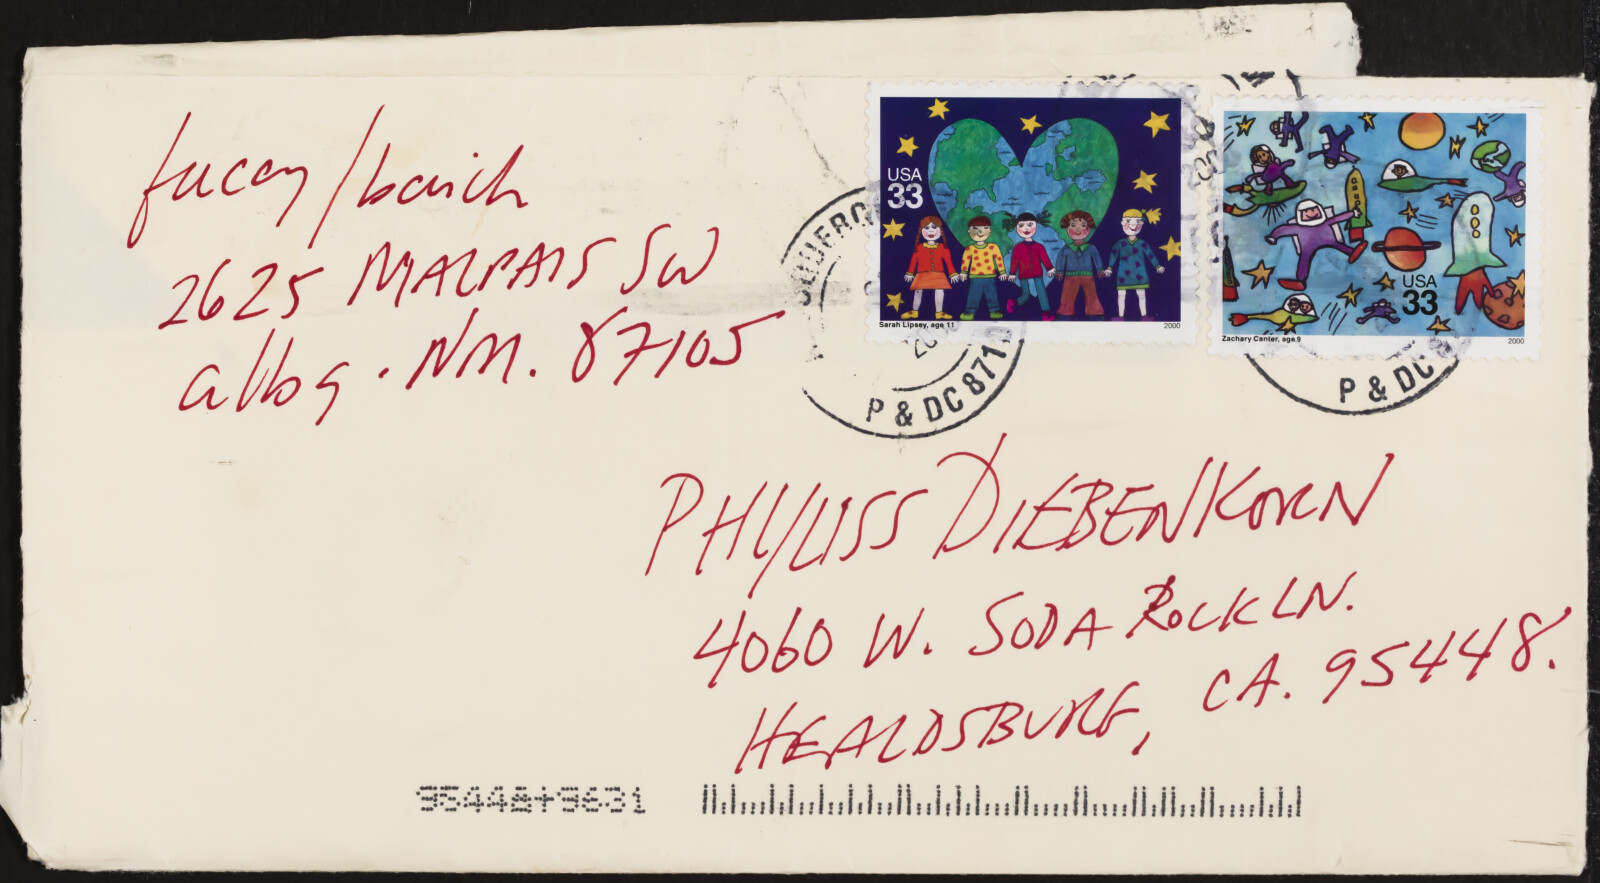 fucay/barich
2625 MALPAIS SW
albq. NM. 87105
USA
33
Sarah Lipsey, age 11
2000
USA
33
Zachary Canter, age 9
2000
P & DC 871
P & DC
PHYLLISS DIEBENKORN
4060 W. SODA ROCK LN.
HEALDSBURG, CA. 95448.
95448+9631